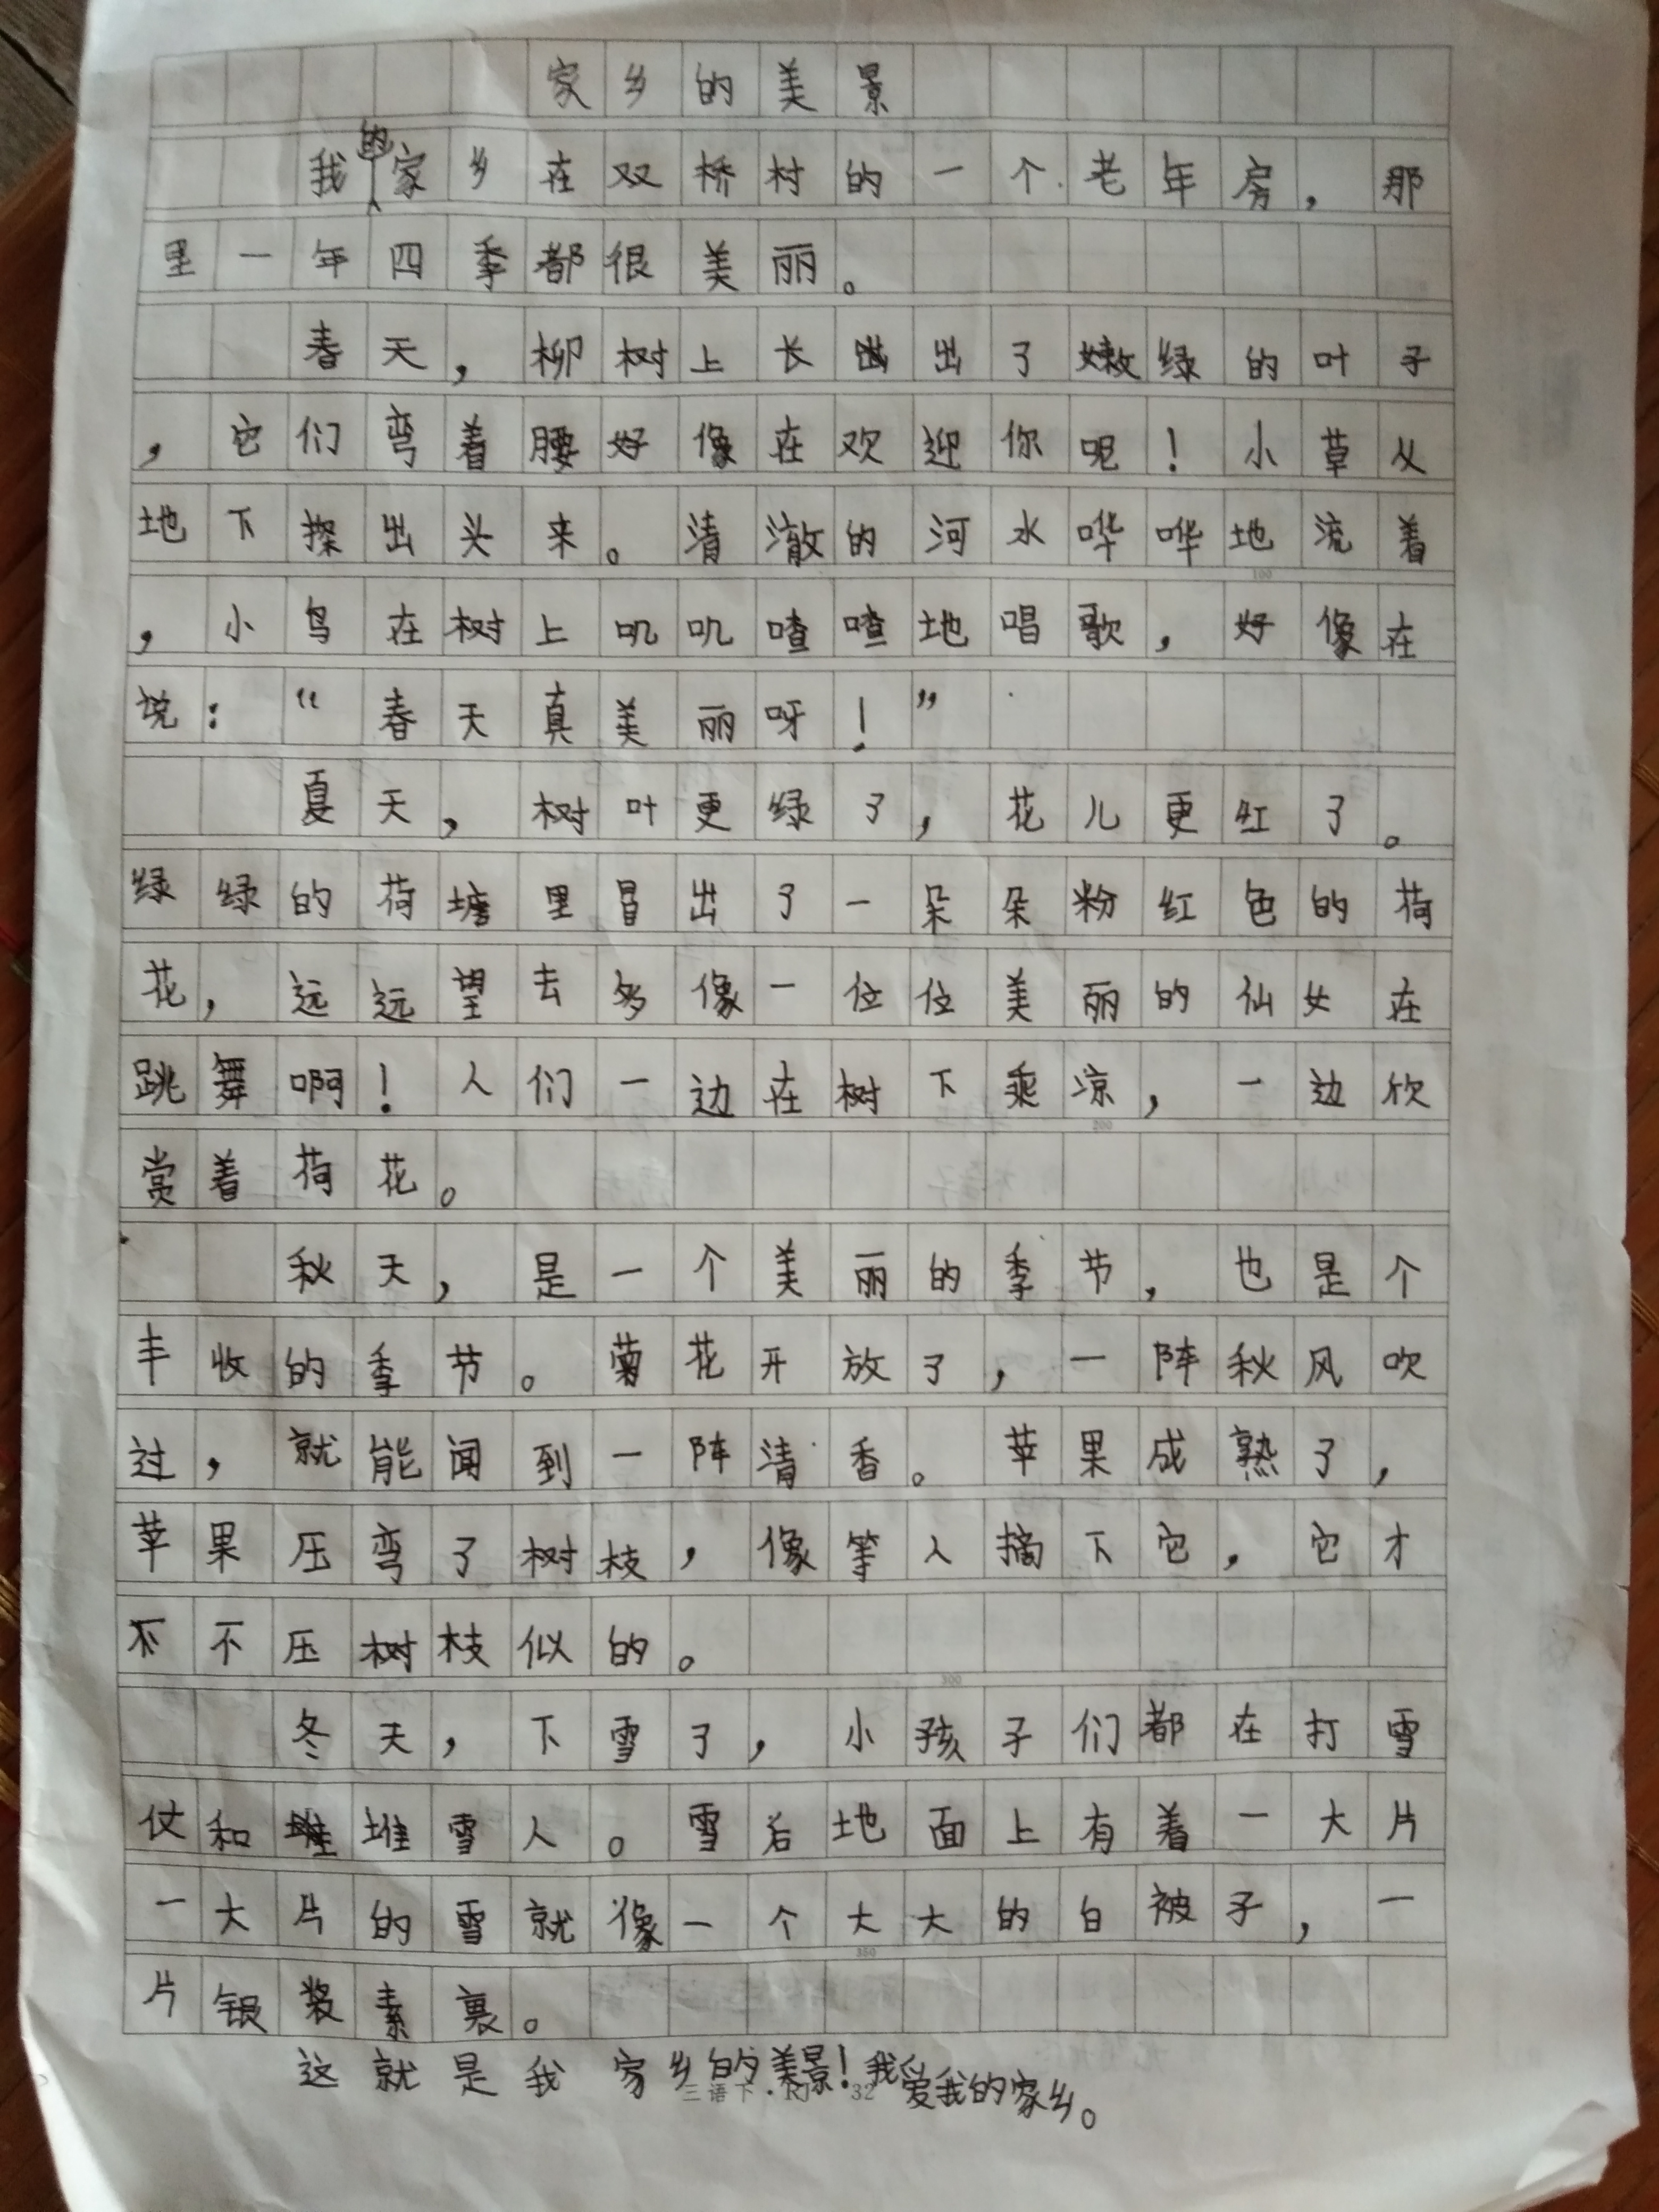 家乡的美景
我的家乡在双桥村的一个老年房，那
里一年四季都很美丽。
春天，柳树上长出了嫩绿的叶子
，它们弯着腰好像在欢迎你呢！小草从
地下探出头来。清澈的河水哗哗地流着
，小鸟在树上叽叽喳喳地唱歌，好像在
说：“春天真美丽呀！”
夏天，树叶更绿了，花儿更红了。
绿绿的荷塘里冒出了一朵朵粉红色的荷
花，远远望去多像一位位美丽的仙女在
跳舞啊！人们一边在树下乘凉，一边欣
赏着荷花。
秋天，是一个美丽的季节，也是个
丰收的季节。菊花开放了，一阵秋风吹
过，就能闻到一阵清香。苹果成熟了，
苹果压弯了树枝，像等人摘下它，它才
不不压树枝似的。
冬天，下雪了，小孩子们都在打雪
仗和堆雪人。雪后地面上有着一大片
一大片的雪就像一个大大的白被子，一
片银装素裹。
这就是我家乡的美景！我爱我的家乡。
三语下·RJ 32
100
200
300
350